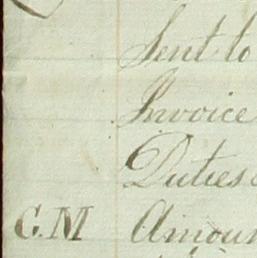 Sent to
Invoice
Duties
G.M Amoun